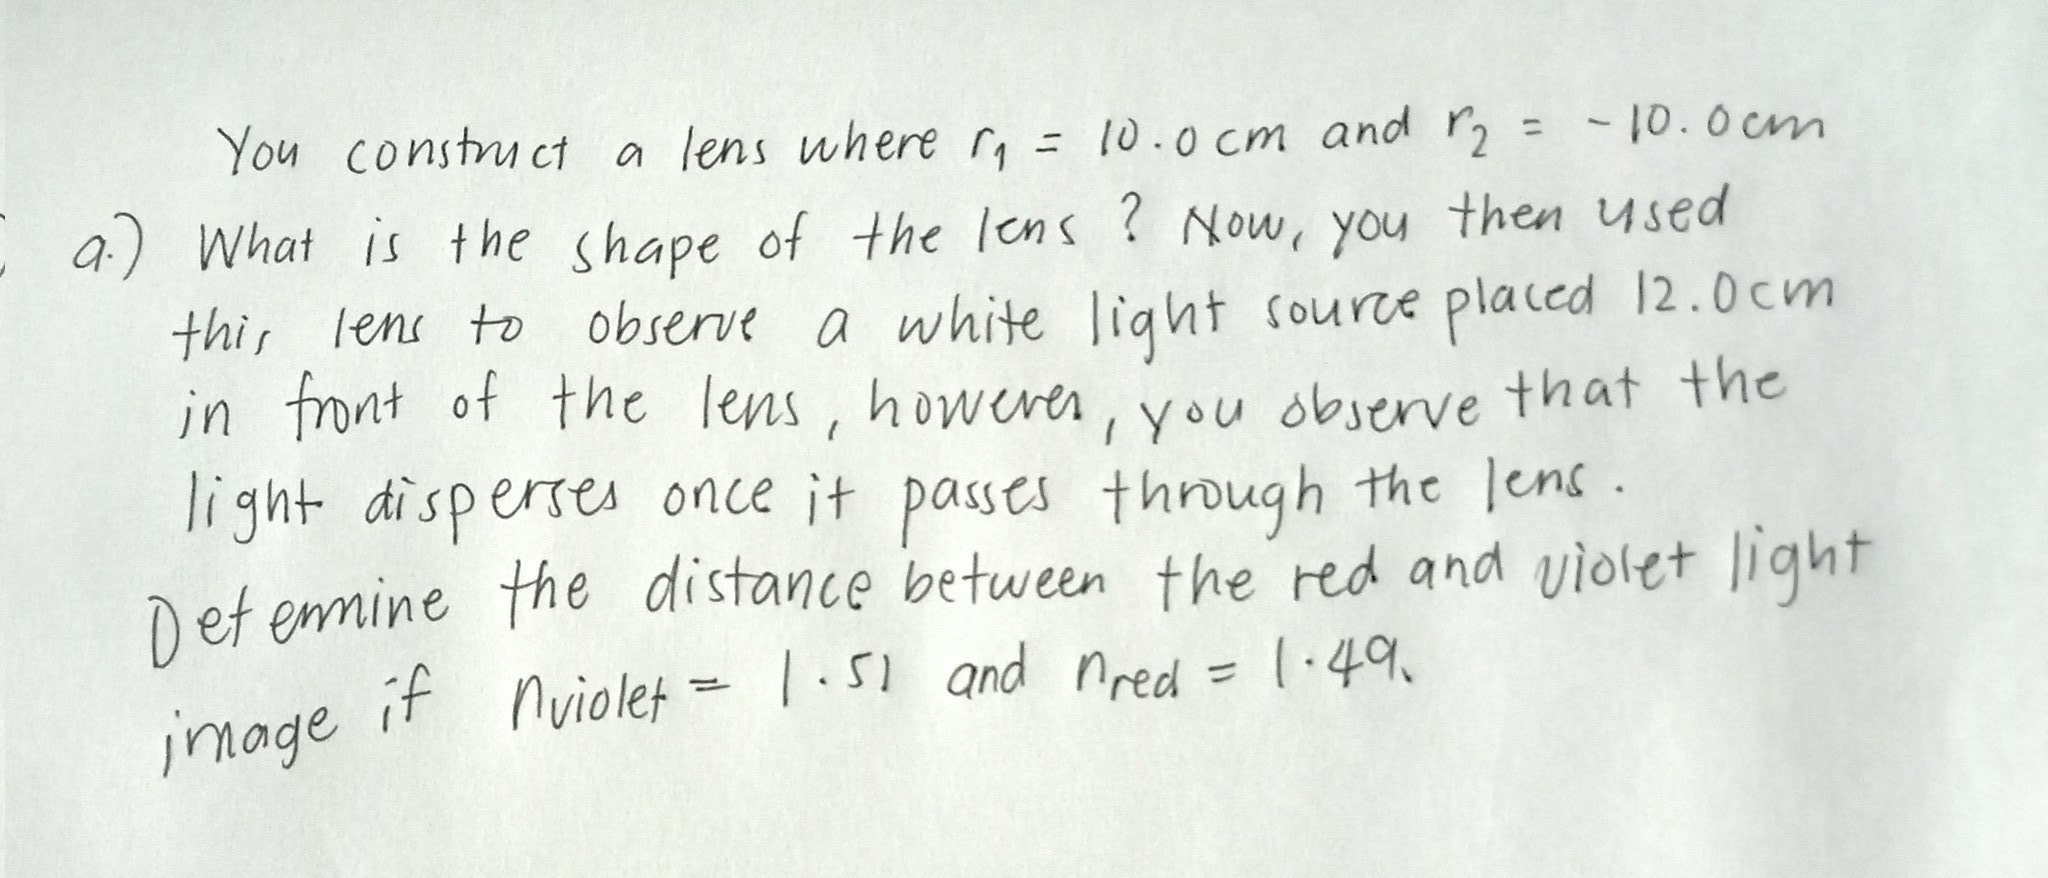 You construct a lens where r₁ = 10.0 cm and r₂ = -10.0cm
a.) What is the shape of the lens ? Now, you then used
this lens to observe a white light source placed 12.0cm
in front of the lens, however, you observe that the
light disperses once it passes through the lens.
Determine the distance between the red and violet light
image if nviolet = 1.51 and nred = 1.49.